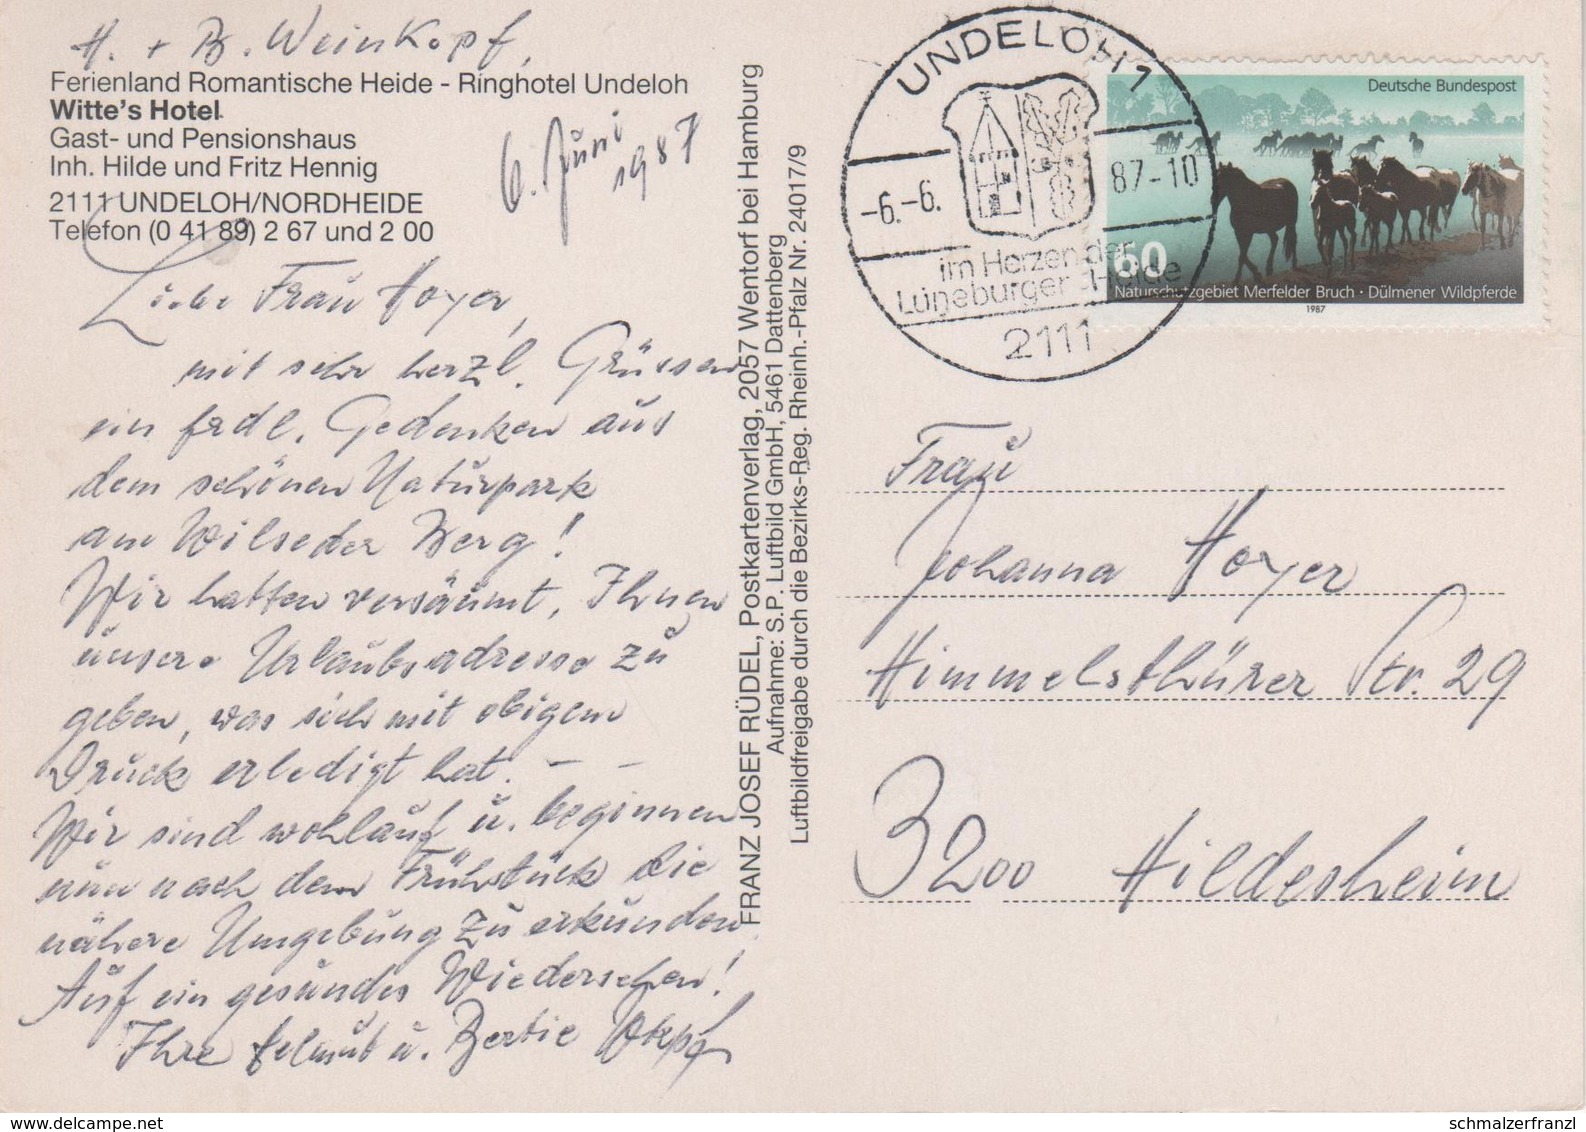 H. + B. Weinkopf,
Ferienland Romantische Heide - Ringhotel Undeloh
Witte's Hotel
Gast- und Pensionshaus
Inh. Hilde und Fritz Hennig
2111 UNDELOH/NORDHEIDE
Telefon (0 41 89) 2 67 und 2 00
6. Juni
1987
Liebe Frau Hoyer,
mit sehr herzl. Grüssen
ein frdl. Gedenken aus
dem schönen Naturpark
am Wilseder Berg!
Wir hatten versäumt, Ihnen
unsere Urlaubsadresse zu
geben, was sich mit obigem
Druck erledigt hat. - -
Wir sind wohlauf u. beginnen
nun nach dem Frühstück die
nähere Umgebung zu erkunden.
Auf ein gesundes Wiedersehen!
Ihre Helmut u. Bertie Wkpf
FRANZ JOSEF RÜDEL, Postkartenverlag, 2057 Wentorf bei Hamburg
Aufnahme: S.P. Luftbild GmbH, 5461 Dattenberg
Luftbildfreigabe durch die Bezirks-Reg. Rheinh.-Pfalz Nr. 24017/9
UNDELOH 1
-6.-6. 87-10
im Herzen der
Lüneburger Heide
2111
Deutsche Bundespost
60
Naturschutzgebiet Merfelder Bruch · Dülmener Wildpferde
1987
Frau
Johanna Hoyer
Himmelsthürer Str. 29
3200 Hildesheim
www.delcampe.net
schmalzerfranzl